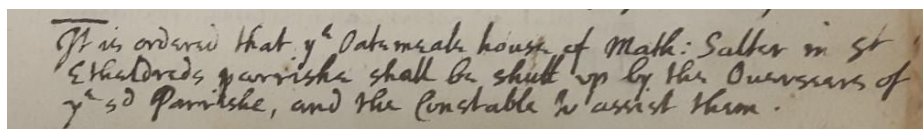 It is ordered that yᵉ Oatemeale house of Math: Salter in St
Etheldreds parrishe shall be shutt up by the Overseers of
yᵉ sd Parrishe, and the Constable to assist them.